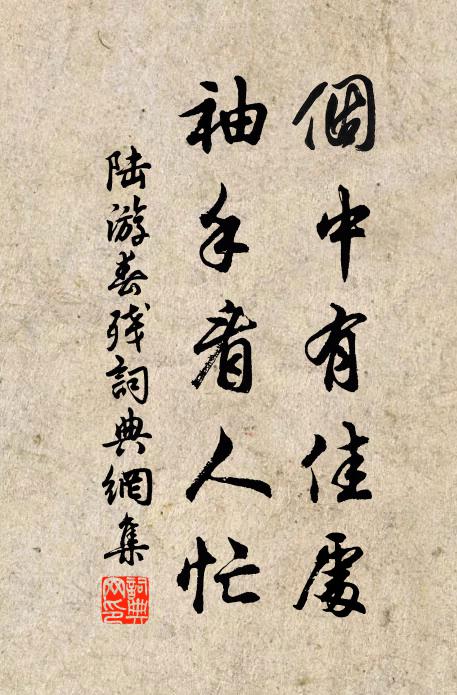 個中有佳處
袖手看人忙
陸游春殘詞典網集
詞典網印